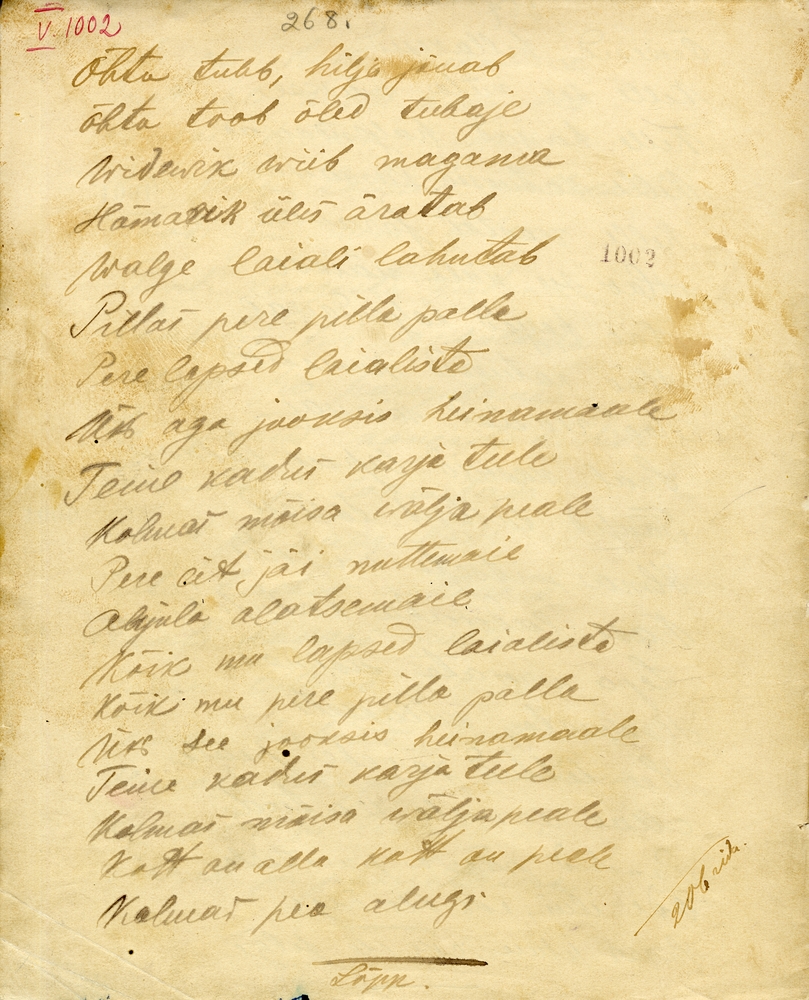 V 1002
268.
Õhta tuleb, hilja jõuab
õhta toob õled tubaje
Widewik wiib magama
Hämarik üles äratab
Walge laiali lahutab
Pillas pere pilla palla
Pere lapsed laialista
Üks aga jooksis heinamaale
Teine kadus karja teele
Kolmas mõisa wälja peale
Pere eit jäi nuttemaie
alatsemaie
Kõik mu lapsed laialista
Kõik mu pere pilla palla
Üks see jooksis heinamaale
Teine kadus karja teele
Kolmas mõisa wälja peale
Kott on alla kott on peale
Kolmas pea alugi
Lõpp.
1002
206 rida.